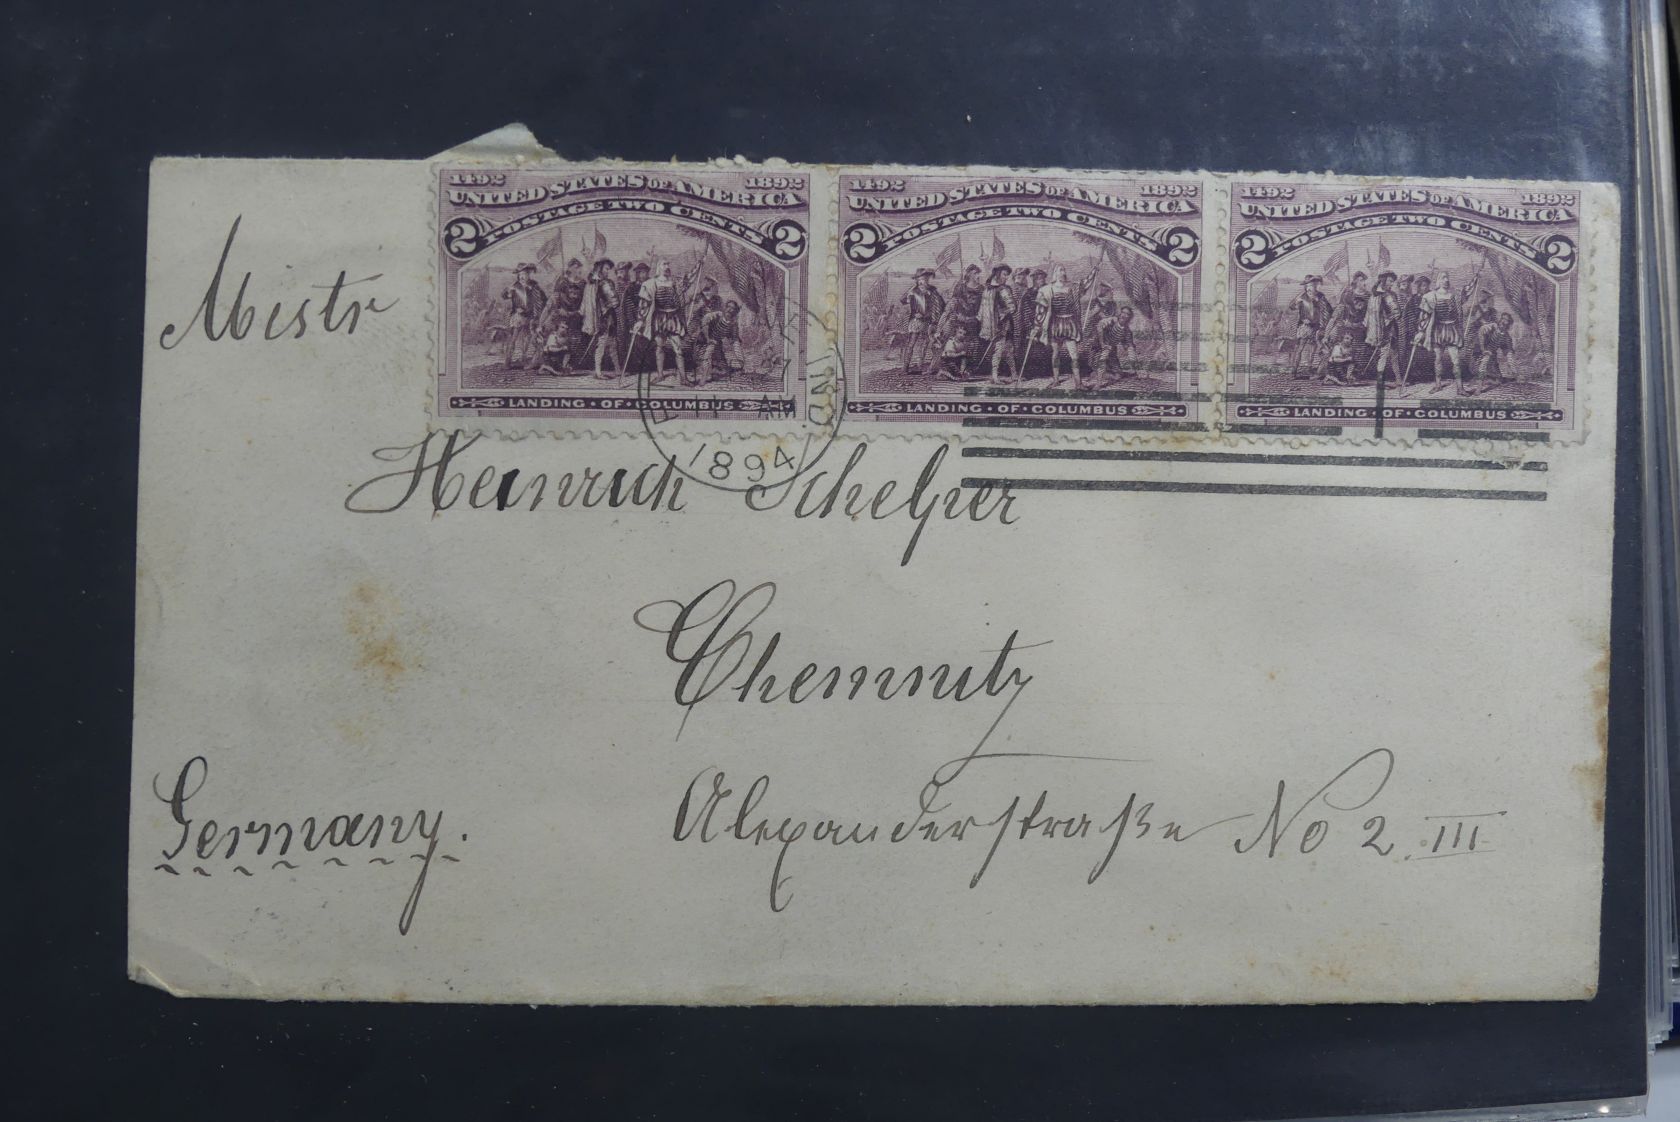 1492 1892
UNITED STATES OF AMERICA
POSTAGE TWO CENTS
2 2
LANDING · OF · COLUMBUS
1492 1892
UNITED STATES OF AMERICA
POSTAGE TWO CENTS
2 2
LANDING · OF · COLUMBUS
1492 1892
UNITED STATES OF AMERICA
POSTAGE TWO CENTS
2 2
LANDING · OF · COLUMBUS
AM
IND.
1894
1
Mistr
Heinrich Schelper
Chemnitz
Germany.
Alexanderstraße No 2 III